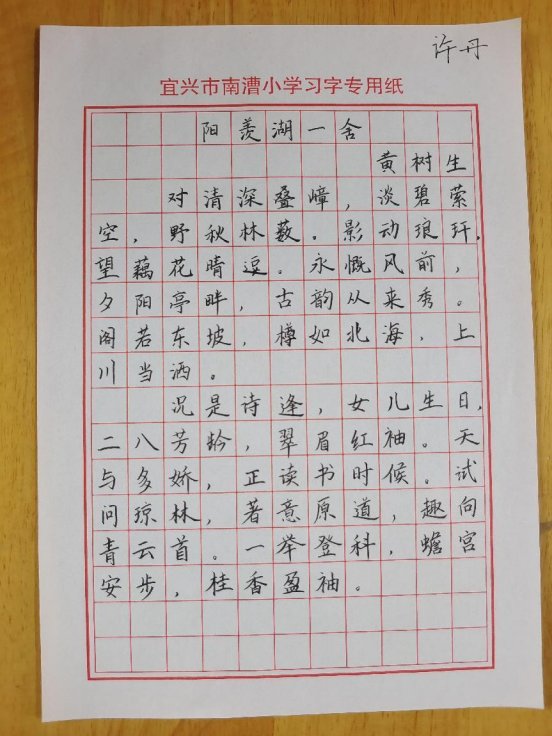 许丹
宜兴市南漕小学习字专用纸
阳羡湖一舍
黄树生
对清深叠嶂，淡碧萦
空，野秋林薮。影动琅玕，
望藕花晴逗。永慨风前，
夕阳亭畔，古韵从来秀。
阁若东坡，樽如北海，上
川当洒。
况是诗逢，女儿生日，
二八芳龄，翠眉红袖。天
与多娇，正读书时候。试
问琼林，著意原道，趣向
青云首。一举登科，蟾宫
安步，桂香盈袖。